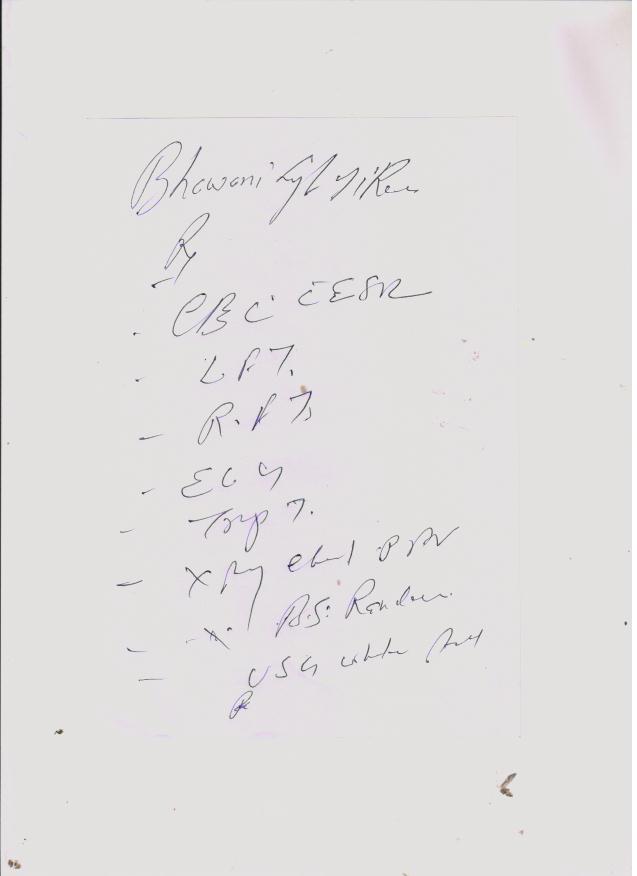 Bhawani
Rx
CBC c̄ ESR
- LFT.
- R.F.T.
- ECG
- Trop T.
- X Ray Chest PAV
- B.S. Random
- USG whole Abd